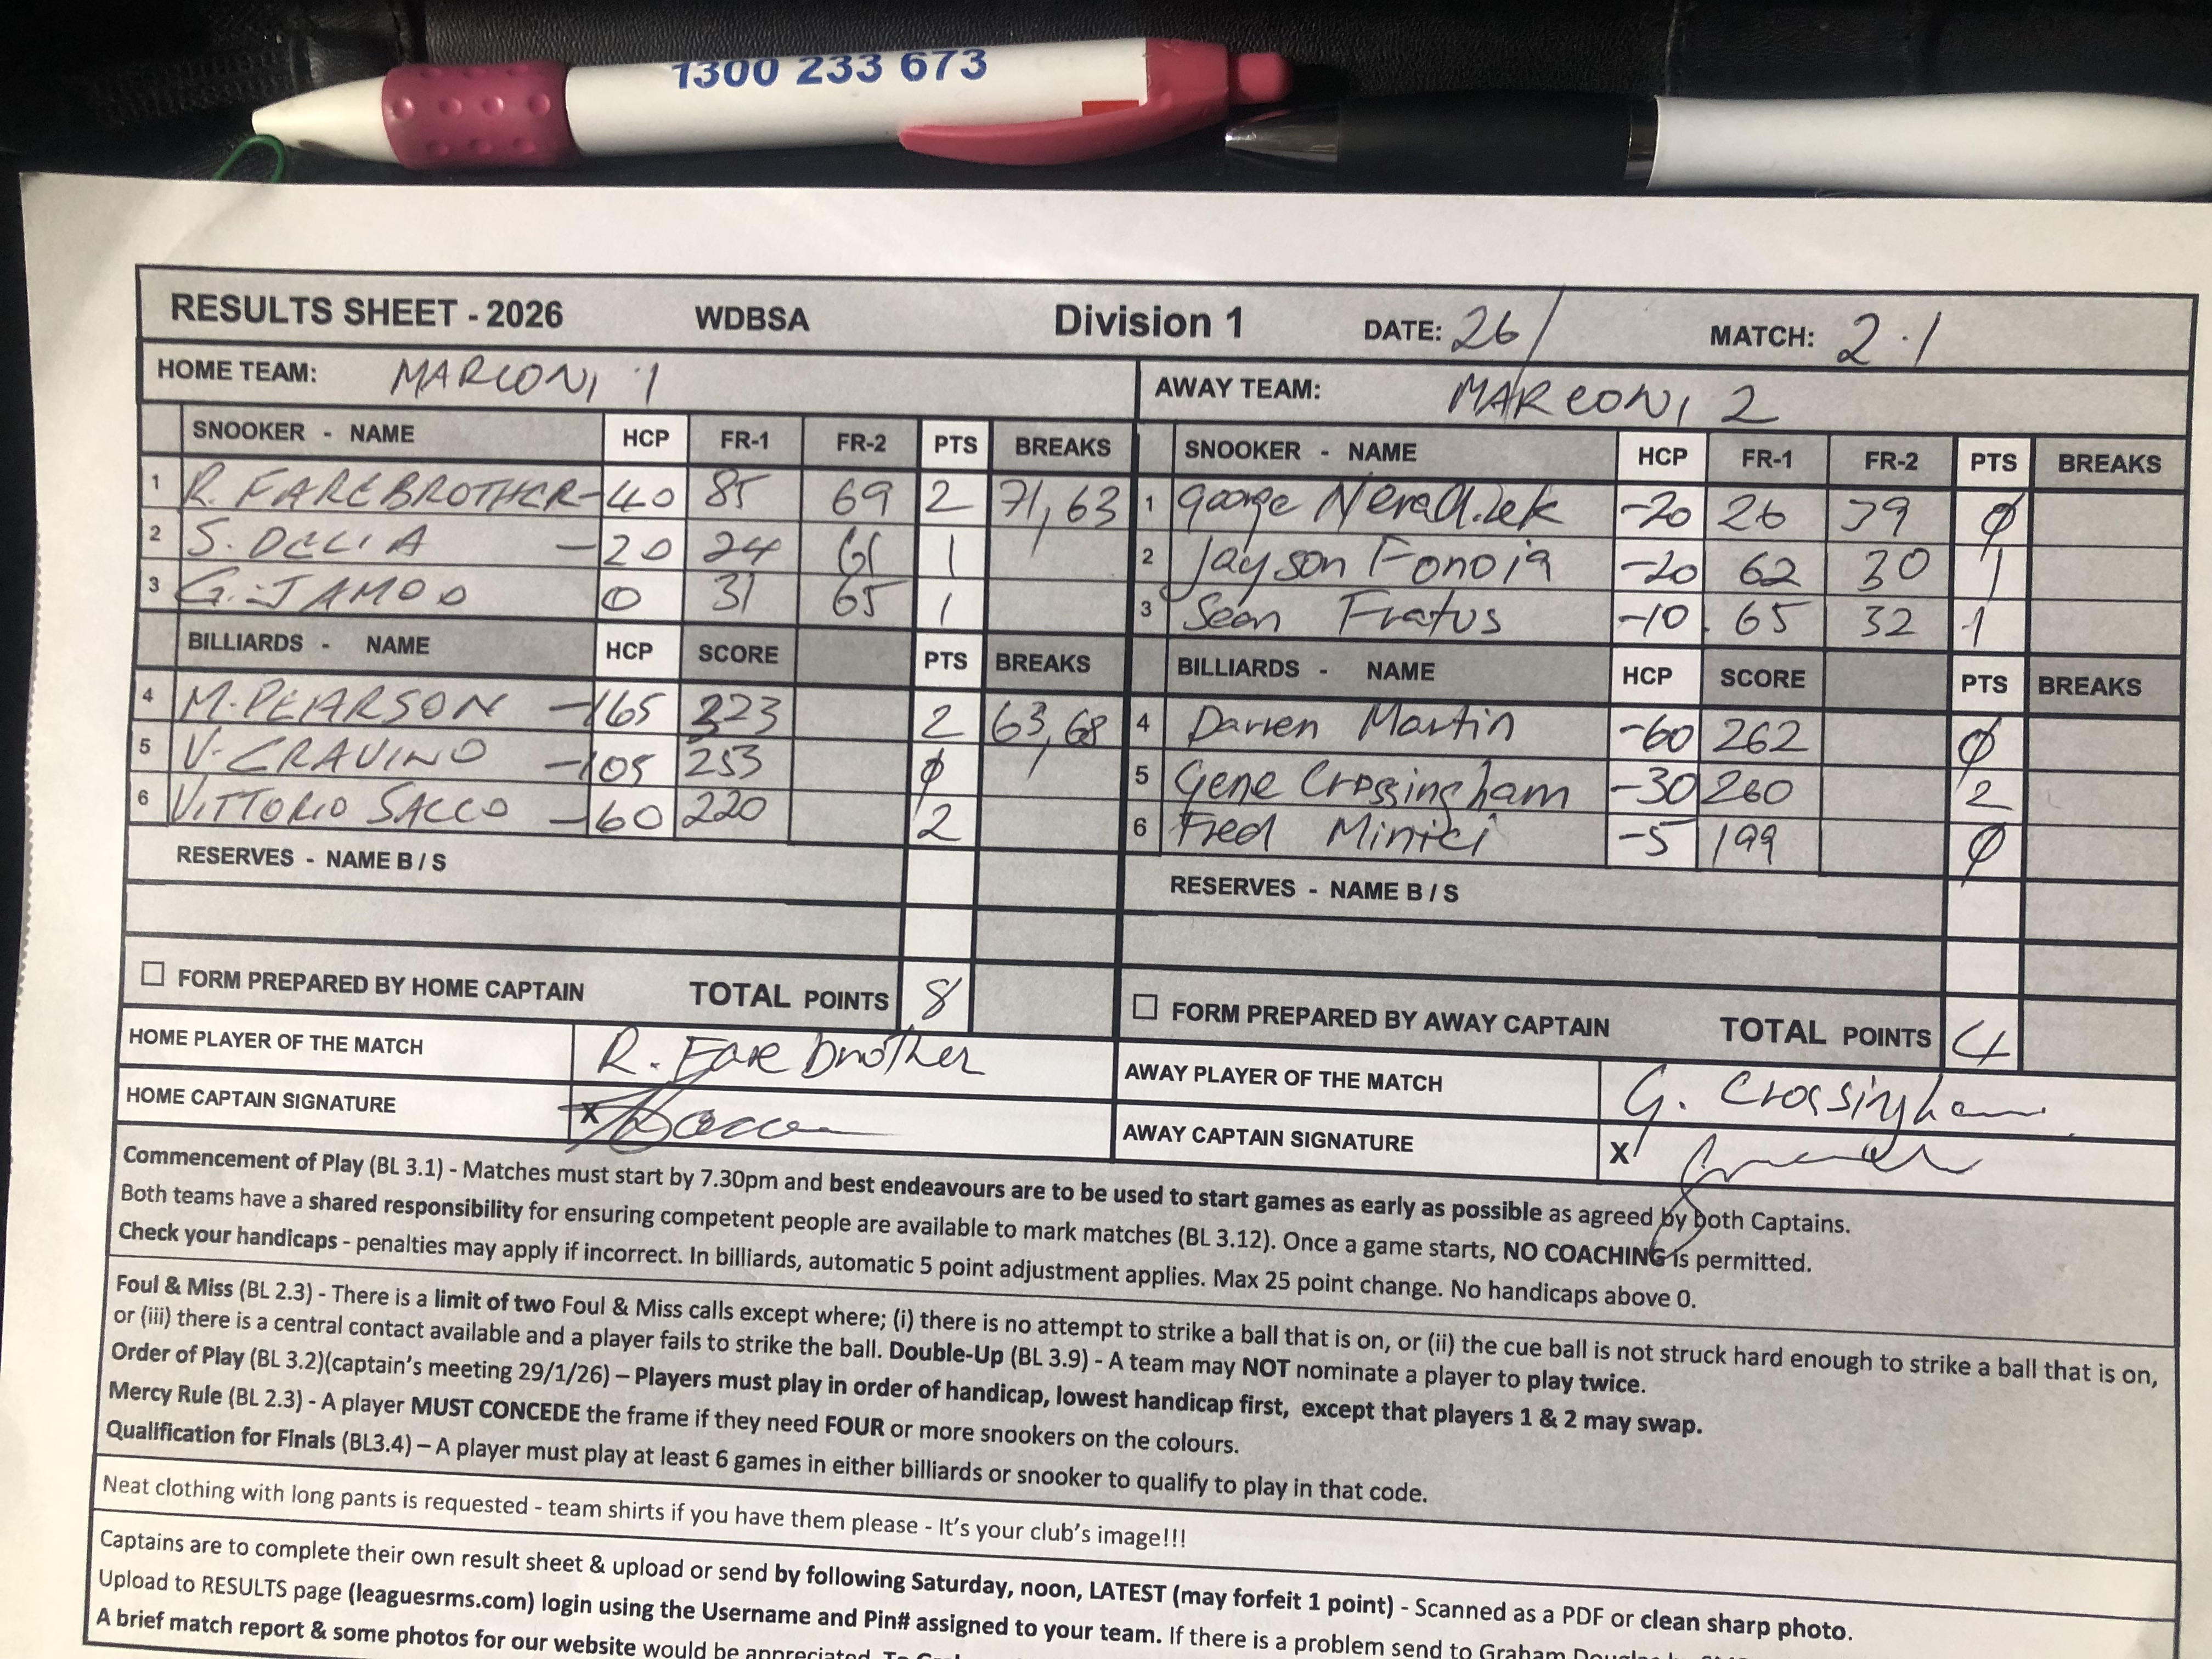 1300 233 673
RESULTS SHEET - 2026 WDBSA Division 1 DATE: 26/ MATCH: 2.1
HOME TEAM: MARCONI 1 AWAY TEAM: MARCONI 2
SNOOKER - NAME HCP FR-1 FR-2 PTS BREAKS SNOOKER - NAME HCP FR-1 FR-2 PTS BREAKS
1 R. FAREBROTHER -40 85 69 2 71, 63 1 George -20 26 39 0
2 S. DELIA -20 24 61 1 2 Jayson Fonoia -20 62 30 1
3 G. JAMOO 0 31 65 1 3 Sean Fratus -10 65 32 1
BILLIARDS - NAME HCP SCORE PTS BREAKS BILLIARDS - NAME HCP SCORE PTS BREAKS
4 M. PEARSON -165 323 2 63, 68 4 Darren Martin -60 262 0
5 V. CRAVINO -105 253 0 5 Gene Crossingham -30 260 2
6 VITTORIO SACCO -60 220 2 6 Fred Minici -5 199 0
RESERVES - NAME B / S RESERVES - NAME B / S
FORM PREPARED BY HOME CAPTAIN TOTAL POINTS 8 FORM PREPARED BY AWAY CAPTAIN TOTAL POINTS 4
HOME PLAYER OF THE MATCH R. Farebrother AWAY PLAYER OF THE MATCH G. Crossingham
HOME CAPTAIN SIGNATURE X AWAY CAPTAIN SIGNATURE X
Commencement of Play (BL 3.1) - Matches must start by 7.30pm and best endeavours are to be used to start games as early as possible as agreed by both Captains.
Both teams have a shared responsibility for ensuring competent people are available to mark matches (BL 3.12). Once a game starts, NO COACHING is permitted.
Check your handicaps - penalties may apply if incorrect. In billiards, automatic 5 point adjustment applies. Max 25 point change. No handicaps above 0.
Foul & Miss (BL 2.3) - There is a limit of two Foul & Miss calls except where; (i) there is no attempt to strike a ball that is on, or (ii) the cue ball is not struck hard enough to strike a ball that is on,
or (iii) there is a central contact available and a player fails to strike the ball. Double-Up (BL 3.9) - A team may NOT nominate a player to play twice.
Order of Play (BL 3.2)(captain's meeting 29/1/26) – Players must play in order of handicap, lowest handicap first, except that players 1 & 2 may swap.
Mercy Rule (BL 2.3) - A player MUST CONCEDE the frame if they need FOUR or more snookers on the colours.
Qualification for Finals (BL3.4) – A player must play at least 6 games in either billiards or snooker to qualify to play in that code.
Neat clothing with long pants is requested - team shirts if you have them please - It's your club's image!!!
Captains are to complete their own result sheet & upload or send by following Saturday, noon, LATEST (may forfeit 1 point) - Scanned as a PDF or clean sharp photo.
Upload to RESULTS page (leaguesrms.com) login using the Username and Pin# assigned to your team. If there is a problem send to Graham
A brief match report & some photos for our website would be appreciated.